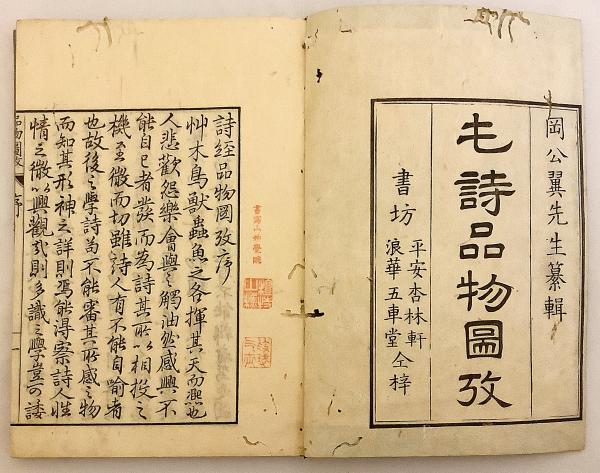 岡公翼先生纂輯
毛詩品物圖攷
書坊
平安杏林軒
浪華五車堂
仝梓
詩經品物圖攷序
艸木鳥獸蟲魚之各揮其天而溷也
人悲歡怨樂會興之觸油然感興不
能自已者發而為詩其所以相投之
機至微而切雖詩人有不能自喻者
也故後之學詩苟不能審其所感之物
而知其形神之詳則焉能得察詩人性
情之微以興觀哉則多識之學豈可諉
品物圖攷
序
一